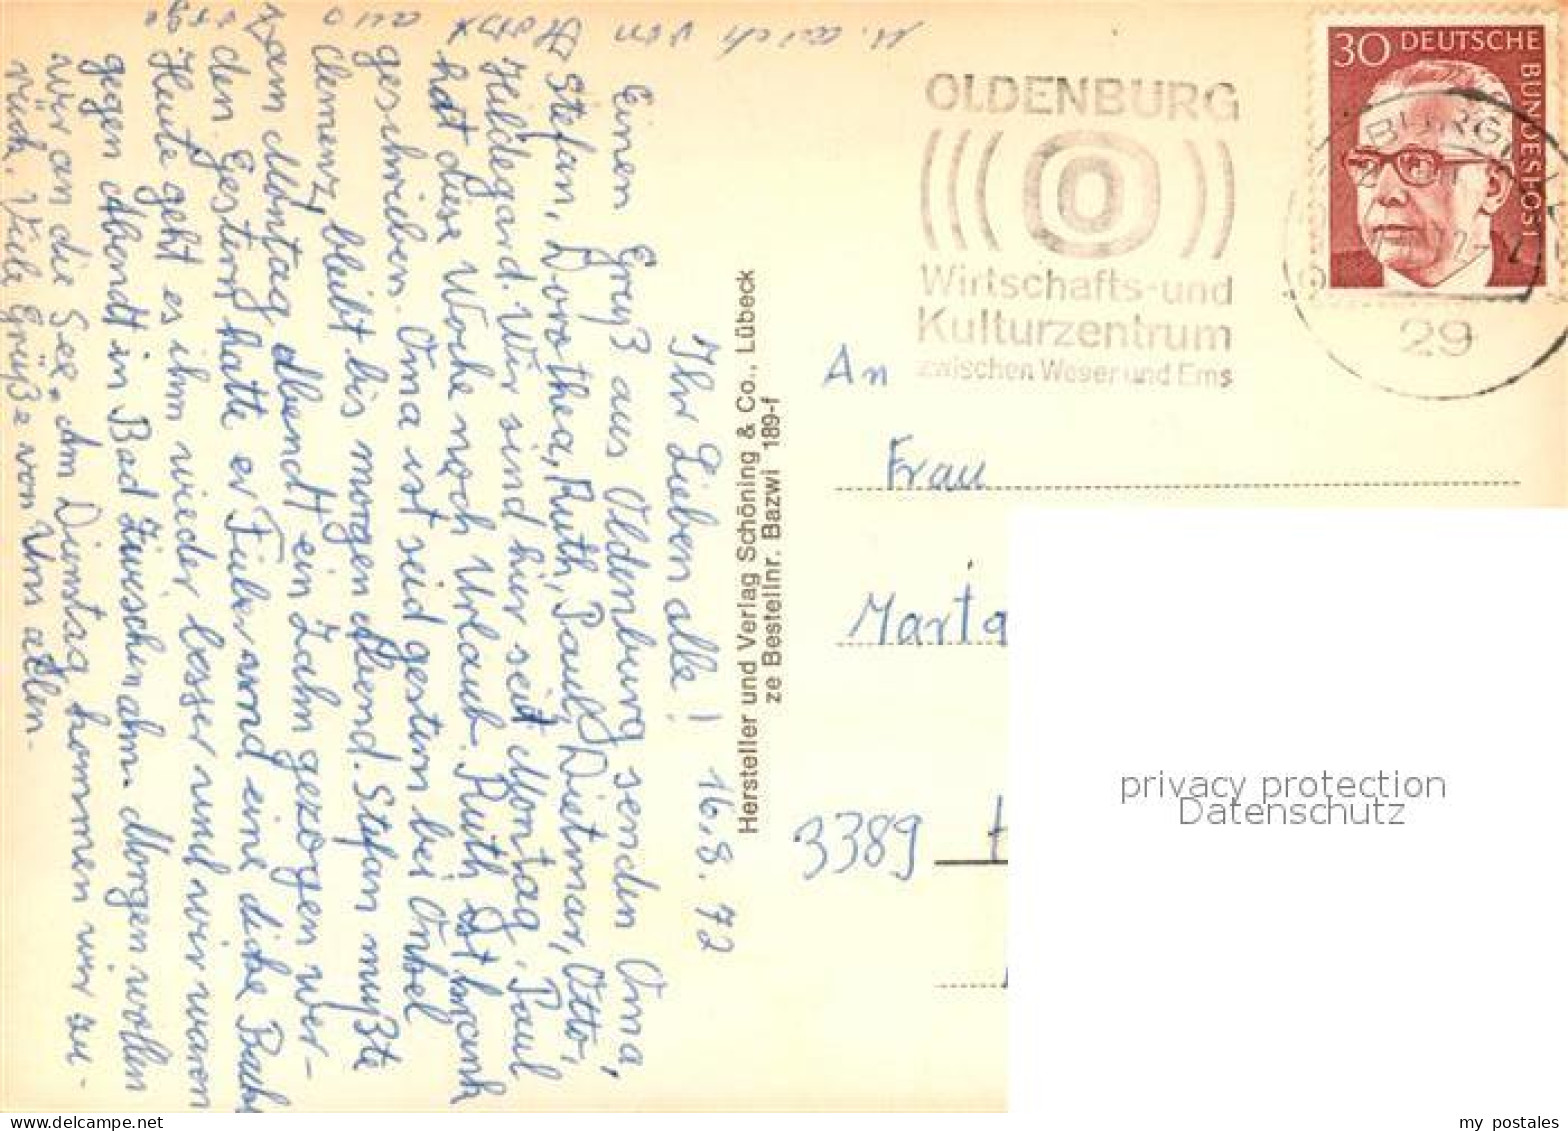 Ihr Lieben alle! 16.8.72
Einen Gruß aus Oldenburg senden Oma,
Stefan, Dorothea, Ruth, Paul, Dietmar, Otto,
Hildegard. Wir sind hier seit Montag. Paul
hat diese Woche noch Urlaub. Ruth ist krank
geschrieben. Oma ist seid gestern bei Onkel
Clemenz, bleibt bis morgen Abend. Stefan mußte
am Montag Abendt ein Zahn gezogen wer-
den. Gestern hatte er Fieber und eine dicke Back
Heute geht es ihm wieder besser und wir waren
gegen Abendt in Bad Zwischenahn. Morgen wollen
wir an die See. Am Dienstag kommen wir zu-
rück. Viele Grüße von Uns allen.
u. auch von
aus
Hersteller und Verlag Schöning & Co., Lübeck
ze Bestellnr. Bazwi 189-f
OLDENBURG
Wirtschafts-und
Kulturzentrum
zwischen Weser und Ems
30 DEUTSCHE BUNDESPOST
29
An
Frau
Marta
3389
privacy protection
Datenschutz
my postales